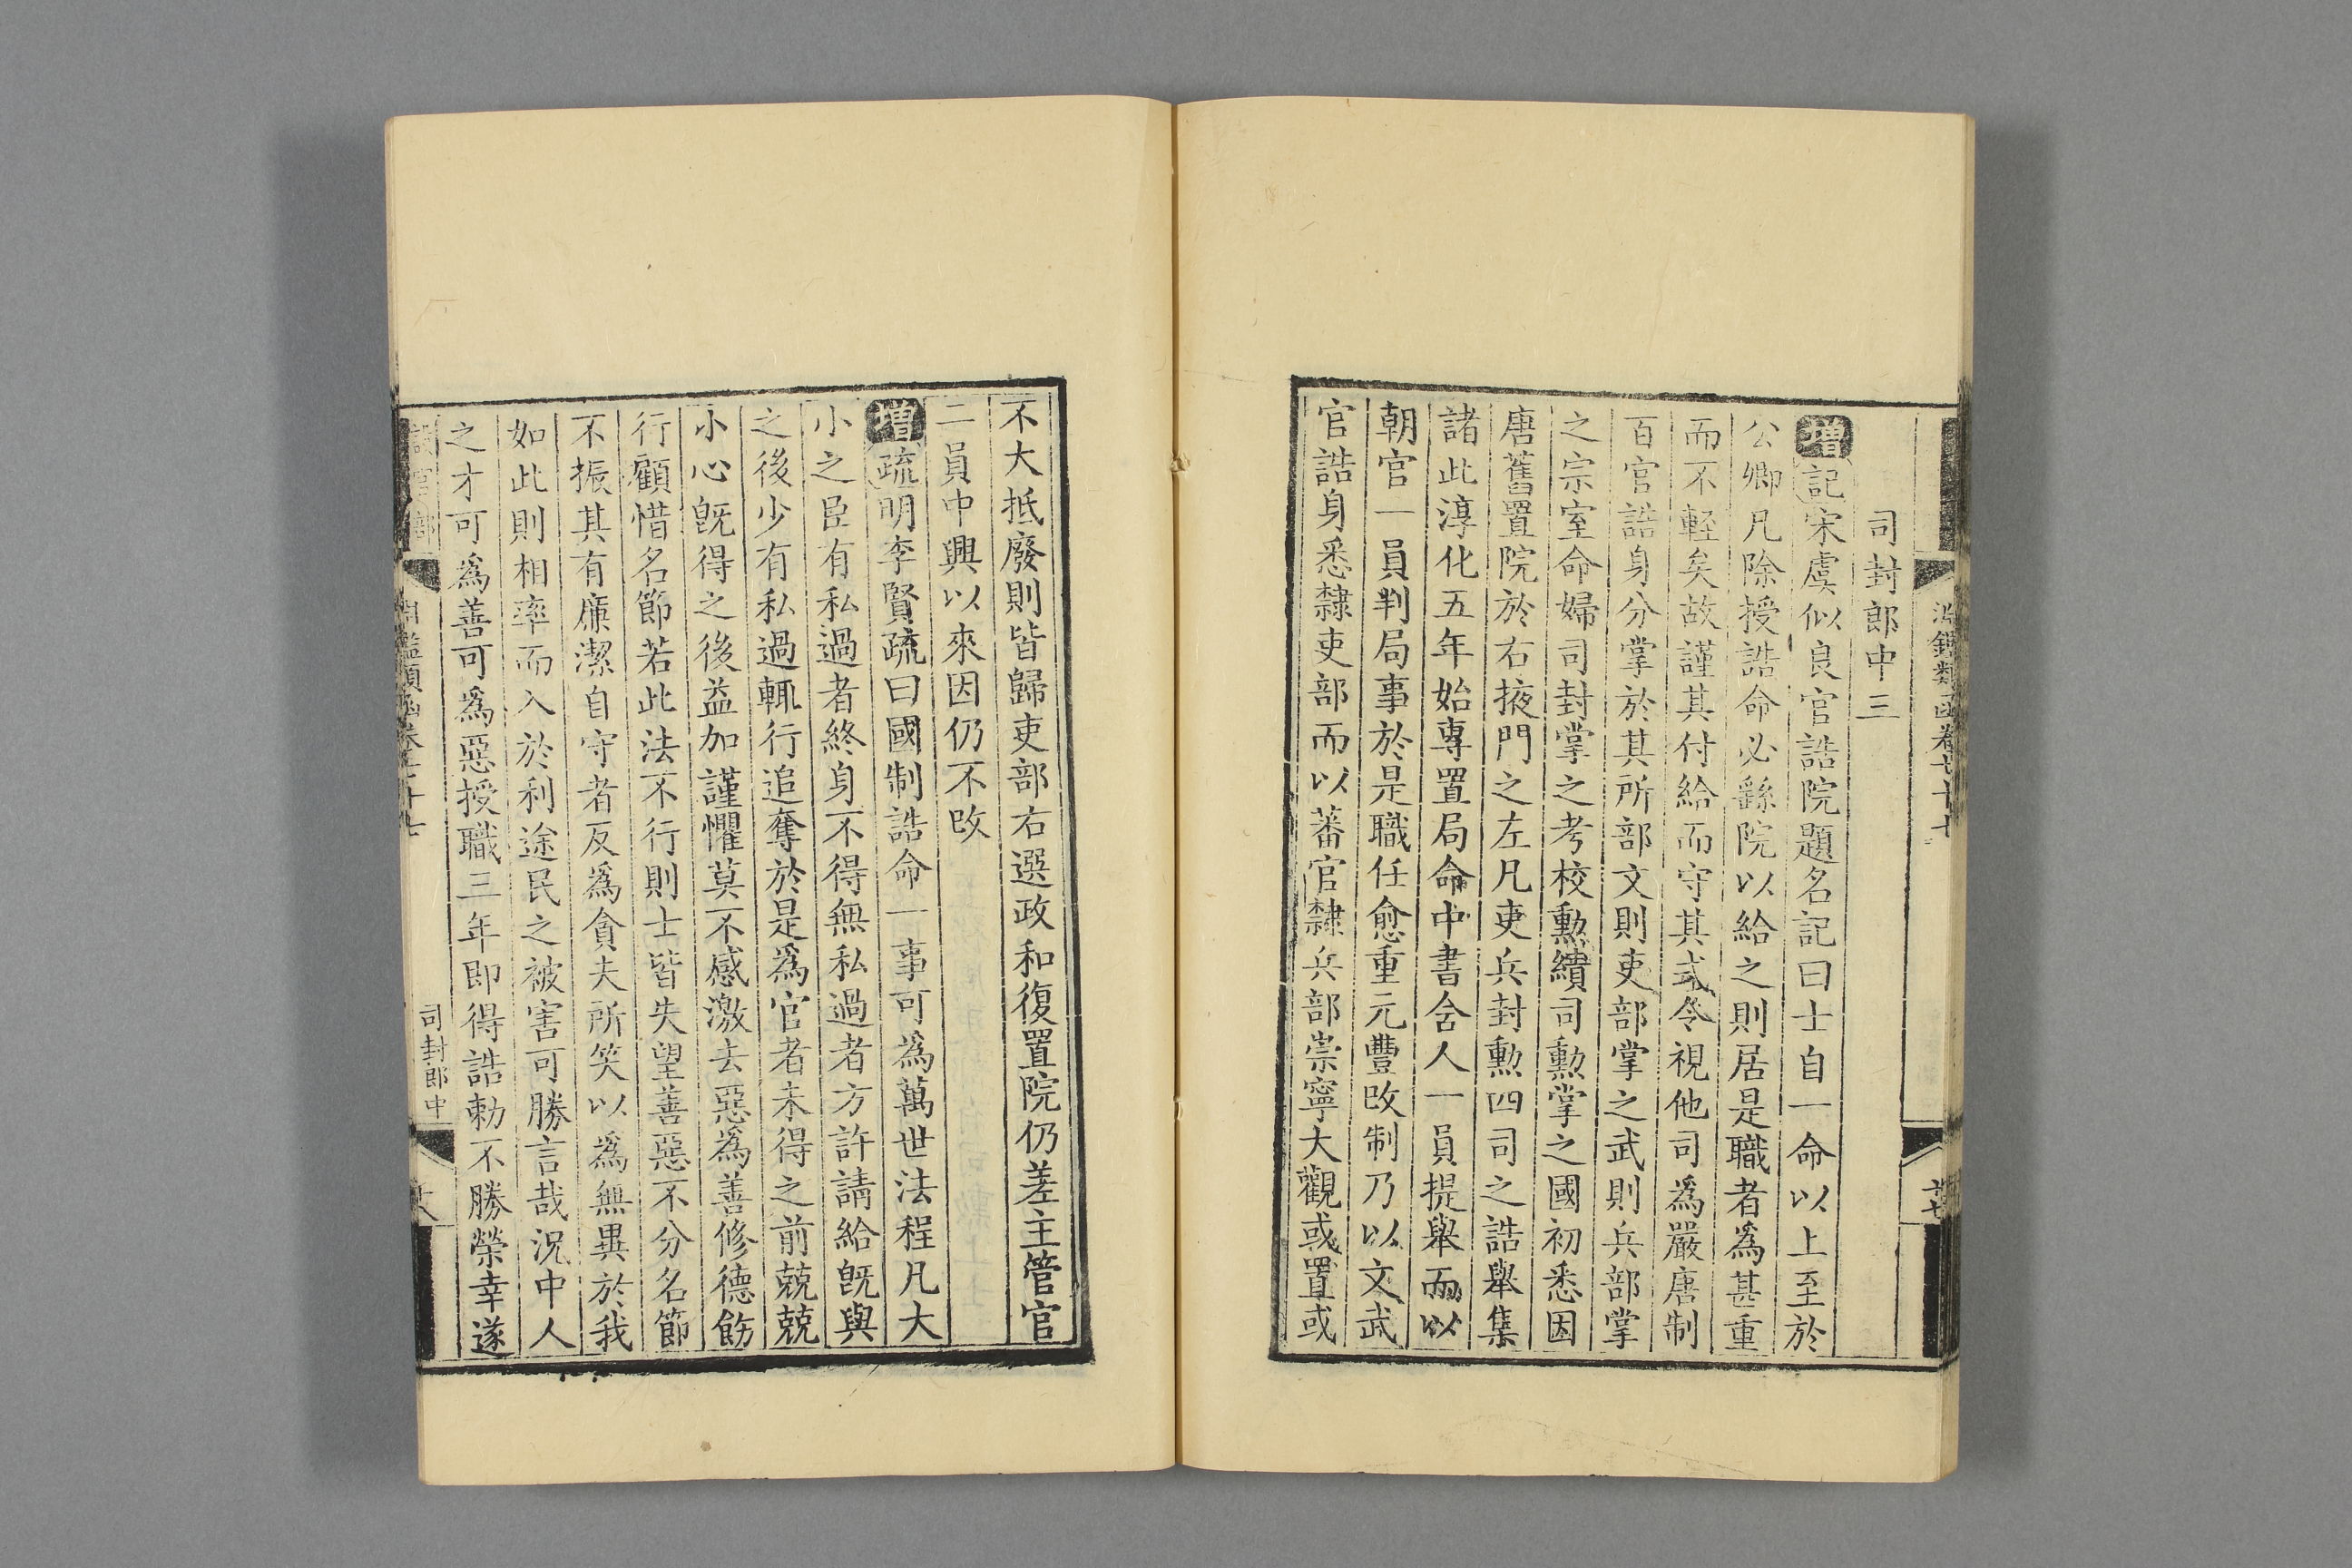 司封郎中三
增記宋虞似良官誥院題名記曰士自一命以上至於
公卿凡除授誥命必繇院以給之則居是職者為甚重
而不輕矣故謹其付給而守其式令視他司為嚴唐制
百官誥身分掌於其所部文則吏部掌之武則兵部掌
之宗室命婦司封掌之考校勳績司勳掌之國初悉因
唐舊置院於右掖門之左凡吏兵封勳四司之誥舉集
諸此淳化五年始專置局命中書舍人一員提舉而以
朝官一員判局事於是職任愈重元豐改制乃以文武
官誥身悉隸吏部而以蕃官隸兵部崇寧大觀或置或
不大抵廢則皆歸吏部右選政和復置院仍差主管官
二員中興以來因仍不改
增疏明李賢疏曰國制誥命一事可為萬世法程凡大
小之臣有私過者終身不得無私過者方許請給旣與
之後少有私過輒行追奪於是為官者未得之前兢兢
小心旣得之後益加謹懼莫不感激去惡為善修德飭
行顧惜名節若此法不行則士皆失望善惡不分名節
不振其有廉潔自守者反為貪夫所笑以為無異於我
如此則相率而入於利途民之被害可勝言哉況中人
之才可為善可為惡授職三年即得誥勅不勝榮幸遂
司封郎中